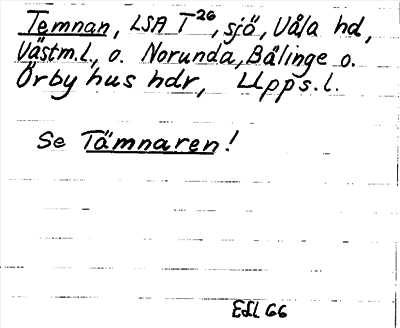 Temnan, LSA T²⁶, sjö, Våla hd,
Västm.l., o. Norunda, Bälinge o.
Örbyhus hdr, Upps.l.
Se Tämnaren!
EÅL 66